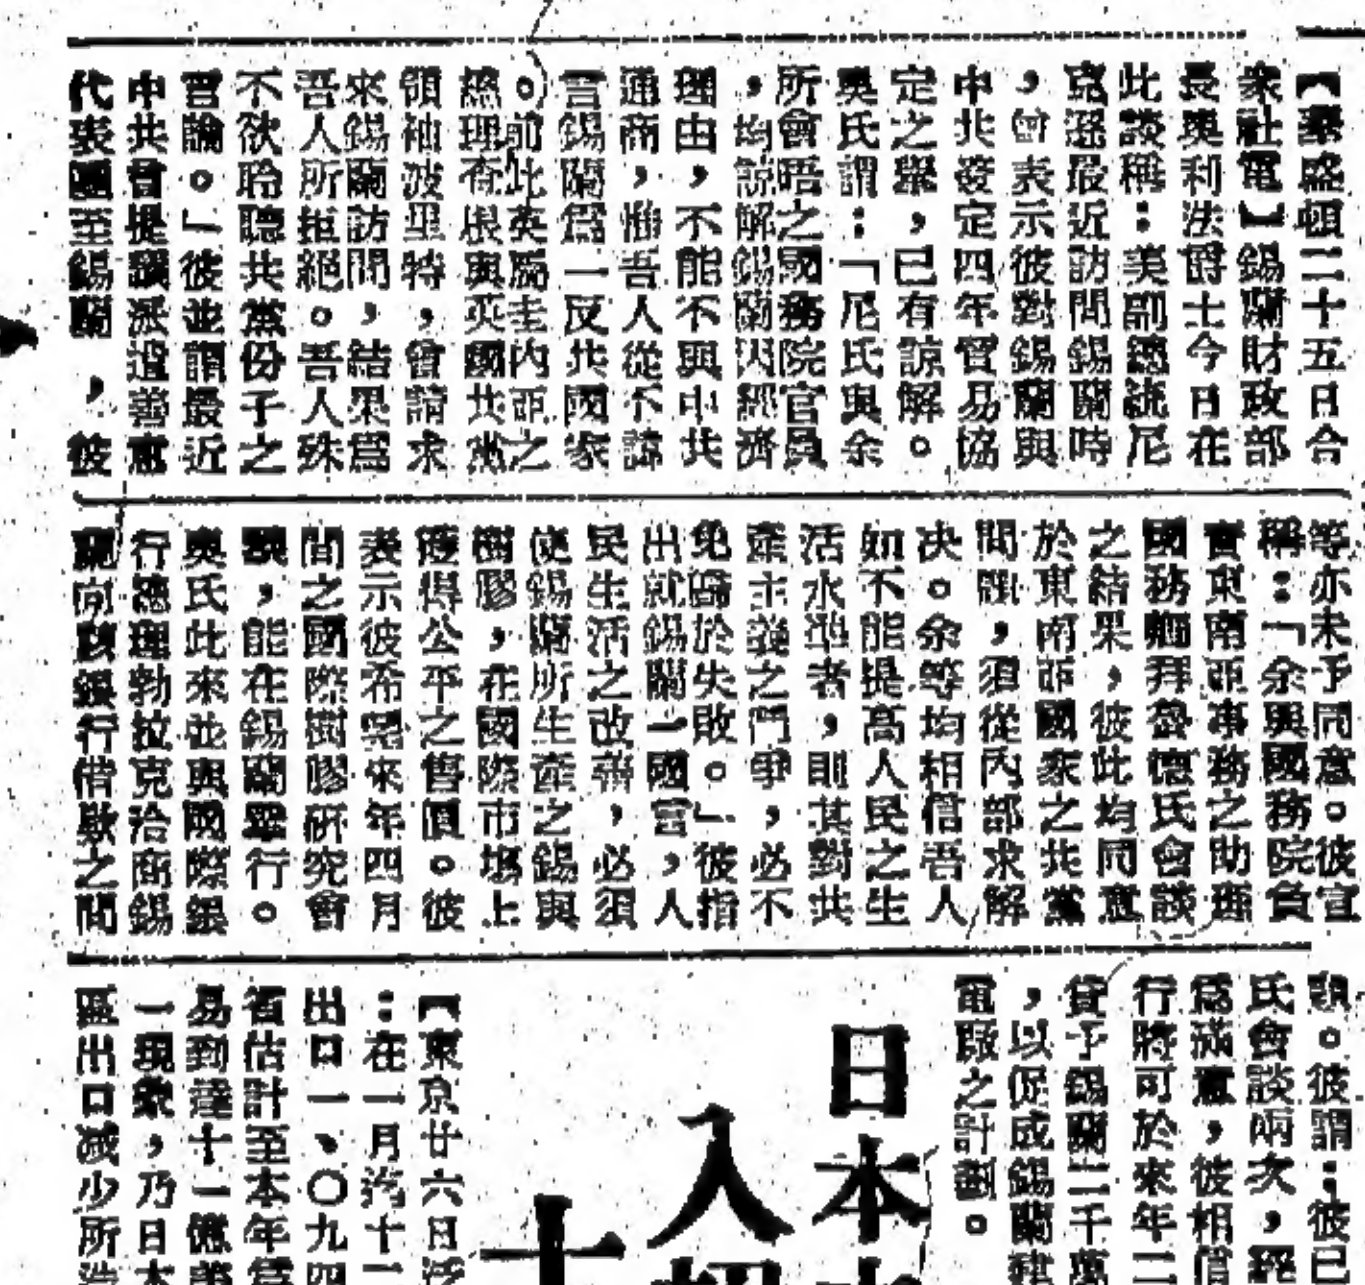 【華盛頓二十五日合
衆社電】錫蘭財政部
長奧利法爵士今日在
此談稱：美副總統尼
克遜最近訪問錫蘭時
，曾表示彼對錫蘭與
中共簽定四年貿易協
定之舉，已有諒解。
奧氏謂：「尼氏與余
所會晤之國務院官員
，均諒解錫蘭因經濟
理由，不能不與中共
通商，惟吾人從不諱
言錫蘭爲一反共國家
。前此英屬圭內亞之
總理查根與英國共黨
領袖波里特，曾請求
來錫蘭訪問，結果爲
吾人所拒絕。吾人殊
不欲聆聽共黨份子之
言論。」彼並謂最近
中共曾提議派遣善意
代表團至錫蘭，彼
等亦未予同意。彼宣
稱：「余與國務院負
責東南亞事務之助理
國務卿拜魯德氏會談
之結果，彼此均同意
於東南亞國家之共黨
問題，須從內部求解
决。余等均相信吾人
如不能提高人民之生
活水準者，則其對共
產主義之鬥爭，必不
免歸於失敗。」彼指
出就錫蘭一國言，人
民生活之改善，必須
使錫蘭所生產之錫與
樹膠，在國際市塲上
獲得公平之售價。彼
表示彼希望來年四月
間之國際樹膠研究會
議，能在錫蘭舉行。
奧氏此來並與國際銀
行總理勃拉克洽商錫
蘭向該銀行借欵之問
題。彼謂：彼已
氏會談兩次，經
爲滿意，彼相信
行將可於來年二
貸予錫蘭二千萬
，以促成錫蘭建
電廠之計劃。
日本
入超
十
【東京廿六日泛
：在一月汔十一
出口一、〇九四
省估計至本年爲
易到達十一億美
一現象，乃日本
區出口减少所造